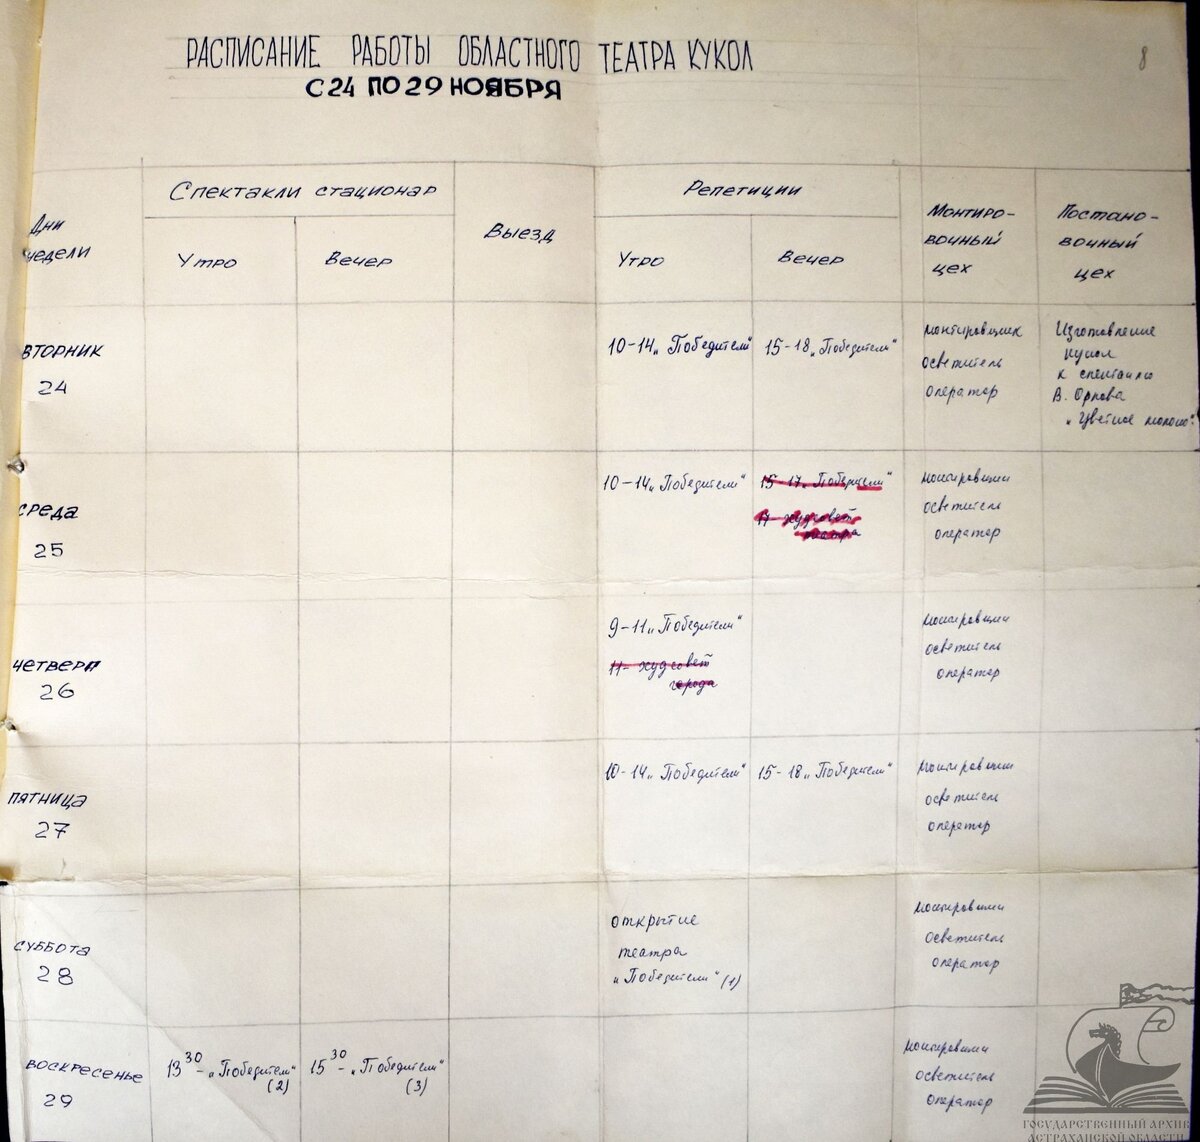 8
РАСПИСАНИЕ РАБОТЫ ОБЛАСТНОГО ТЕАТРА КУКОЛ
С 24 ПО 29 НОЯБРЯ
Дни недели
Спектакли стационар
Утро
Вечер
Выезд
Репетиции
Утро
Вечер
Монтиро-
вочный
цех
Постано-
вочный
цех
ВТОРНИК
24
10-14 „Победители"
15-18 „Победители"
монтировщик
осветитель
оператор
Изготовление
кукол
к спектаклю
В. Орлова
„Цветное молоко"
СРЕДА
25
10-14 „Победители"
15-17 „Победители"
17- худсовет
театра
монтировщик
осветитель
оператор
ЧЕТВЕРГ
26
9-11 „Победители"
11- худсовет
города
монтировщик
осветитель
оператор
ПЯТНИЦА
27
10-14 „Победители"
15-18 „Победители"
монтировщик
осветитель
оператор
СУББОТА
28
открытие
театра
„Победители" (1)
монтировщик
осветитель
оператор
ВОСКРЕСЕНЬЕ
29
13 30 - „Победители"
(2)
15 30 - „Победители"
(3)
монтировщик
осветитель
оператор
ГОСУДАРСТВЕННЫЙ АРХИВ
АСТРАХАНСКОЙ ОБЛАСТИ